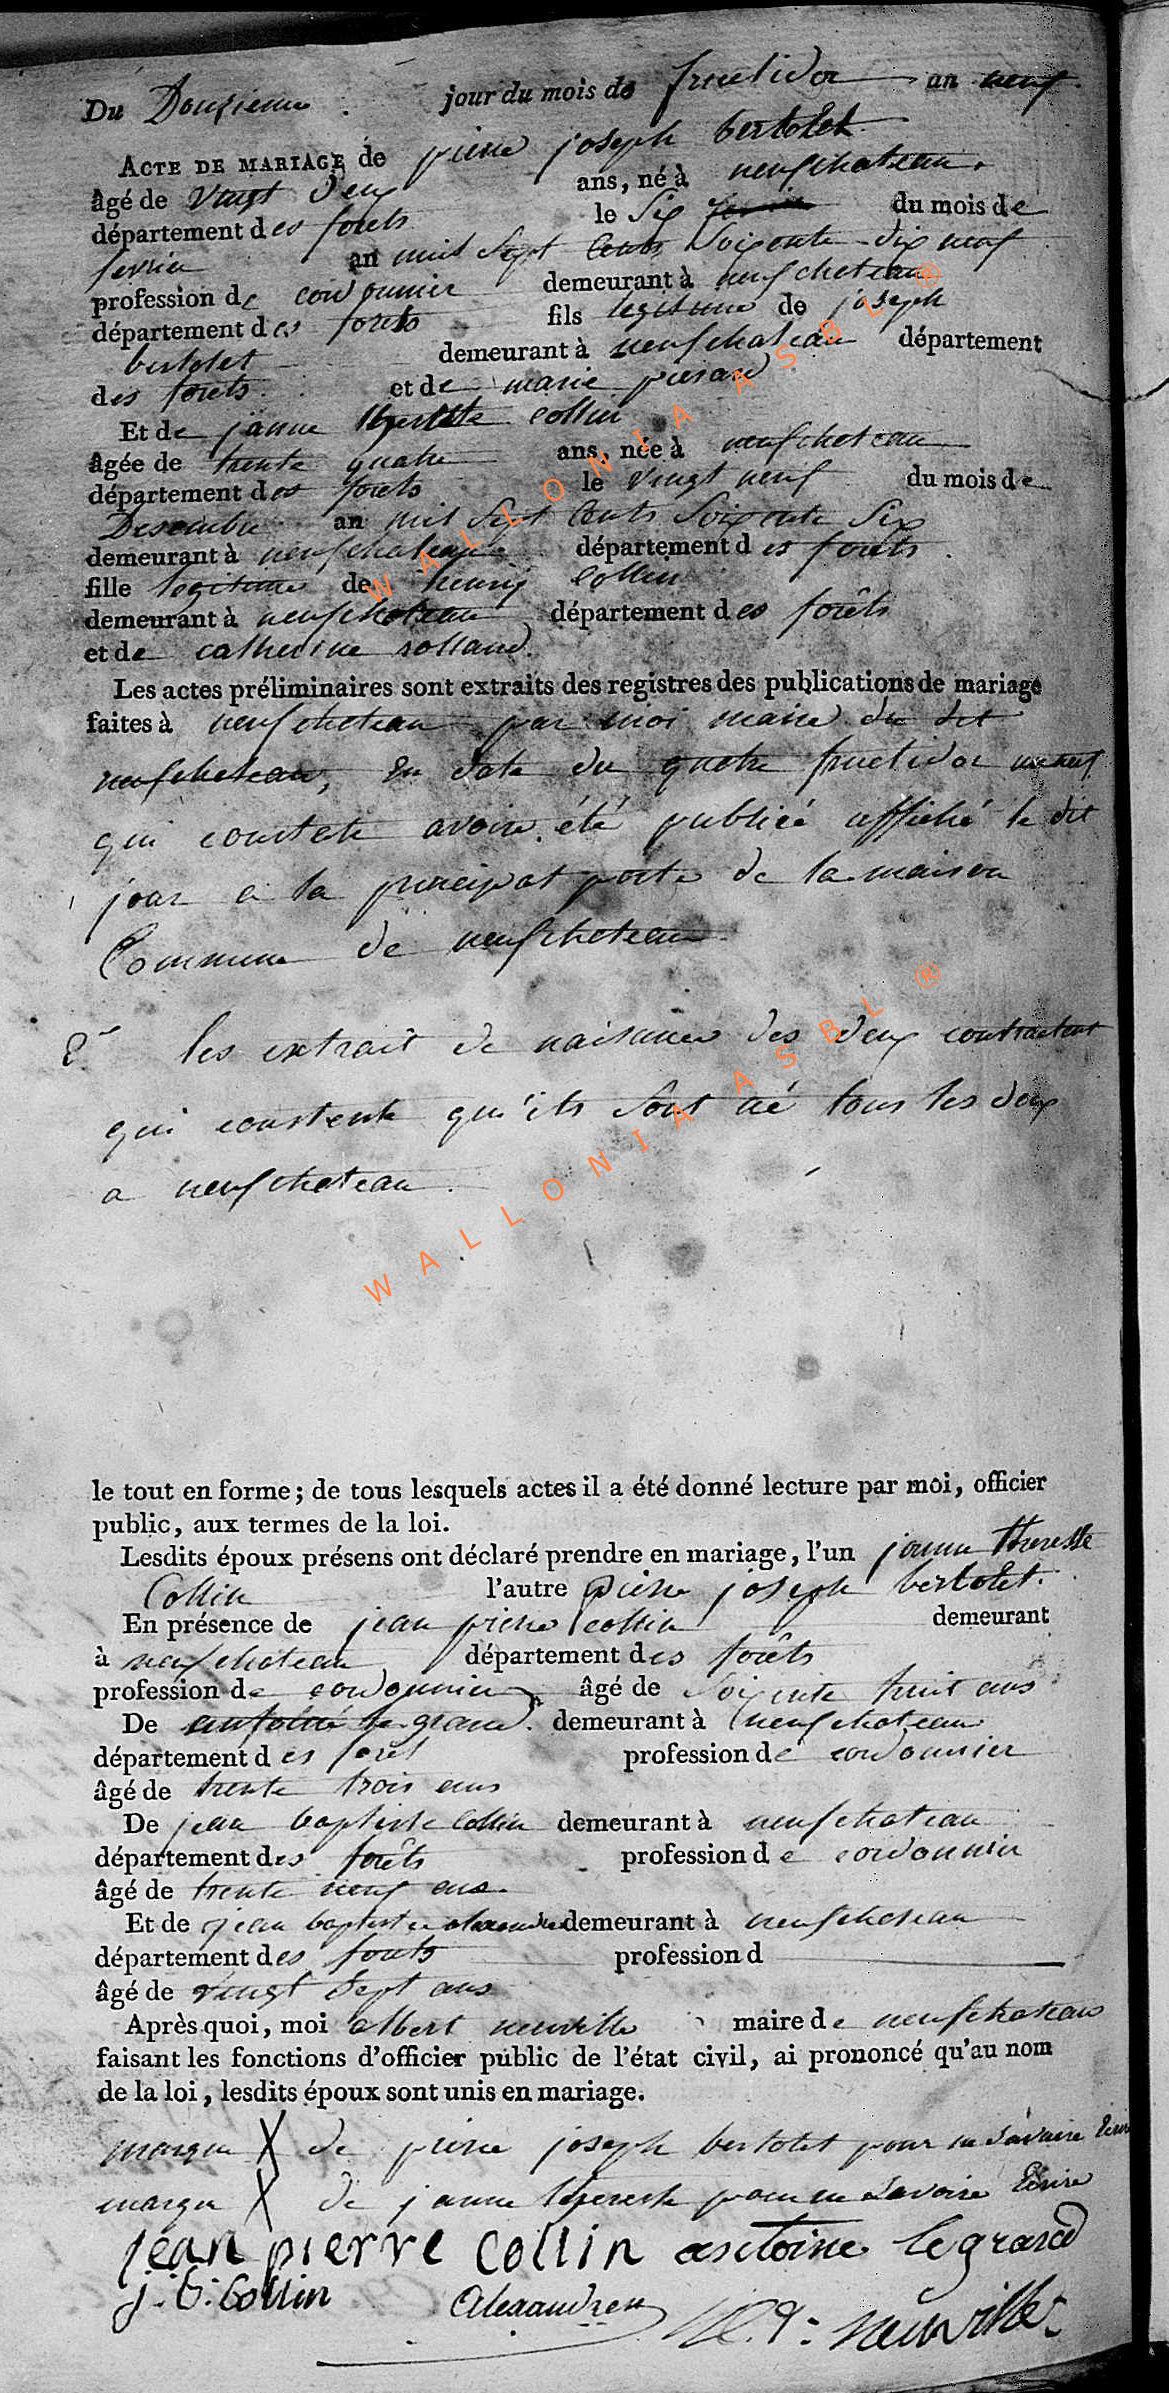 Du Douzieme jour du mois de fructidor an neuf
ACTE DE MARIAGE de pierre joseph bertolet
âgé de vingt deux ans, né à neufchateau
département des forets le Six du mois de
fevrier an mil Sept Cents Soixente dix neuf
profession de cordonnier demeurant à neufchateau
département des forets fils legitime de joseph
bertolet demeurant à neufchateau département
des forets et de marie pierard
Et de janne therese Collin
âgée de trente quatre ans, née à neufchateau
département des forets le vingt neuf du mois de
Desembre an mil Sept Cents Soixente Six
demeurant à neufchateau département des forets
fille legitime de henriy Collin
demeurant à neufchateau département des forêts
et de catherine rolland
Les actes préliminaires sont extraits des registres des publications de mariage
faites à neufchateau par moi maire du dit
neufchateau, en date du quatre fructidor an neuf
qui constate avoire été publié affiché le dit
jour a la principal porte de la maison
Commune de neufchateau
2° les extrait de naissance des deux contractant
qui constente qu'ils sont né tous les deux
a neufchateau.
le tout en forme; de tous lesquels actes il a été donné lecture par moi, officier
public, aux termes de la loi.
Lesdits époux présens ont déclaré prendre en mariage, l'un janne theresse
Collin l'autre pierre joseph bertolet.
En présence de jean pierre collin demeurant
à neufchateau département des forêts
profession de cordonnier âgé de Soixente huit ans
De antoine le grand. demeurant à neufchateau
département des foret profession de cordonnier
âgé de trente trois ans
De jean baptiste Collin demeurant à neufchateau
département des forêts profession de cordonnier
âgé de trente neuf ans.
Et de jean baptiste demeurant à neufchateau
département des forets profession d
âgé de vingt Sept ans
Après quoi, moi albert neuville maire de neufchateau
faisant les fonctions d'officier public de l'état civil, ai prononcé qu'au nom
de la loi, lesdits époux sont unis en mariage.
marque X de pierre joseph bertolet pour ne savoire Ecrire
marque X de janne therese pour ne savoire Ecrire
jean pierre collin antoine legrand
j: b: Collin Alexandre neuville
WALLONIA ASBL ®
WALLONIA ASBL ®